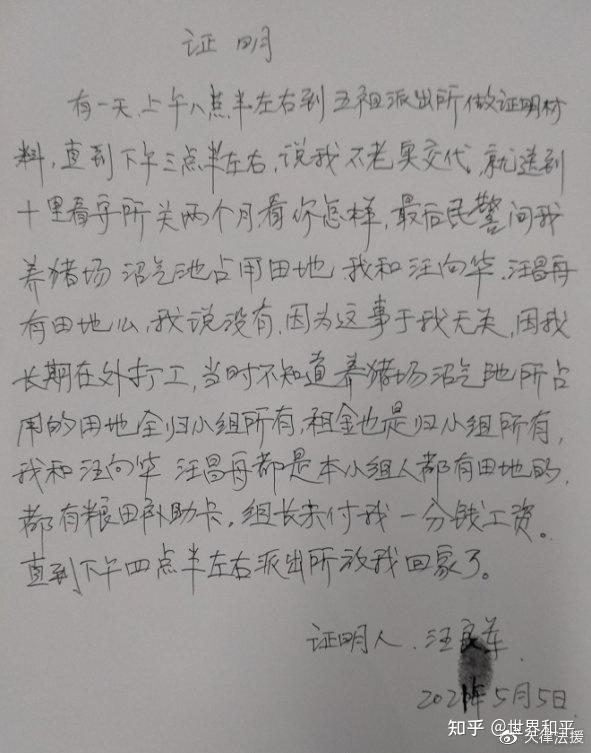 证明
有一天,上午八点半左右到五祖派出所做证明材
料,直到下午三点半左右,说我不老实交代,就送到
十里看守所关两个月,看你怎样,最后民警问我
养猪场沼气池占用田地,我和汪向华、汪昌再
有田地么,我说没有,因为这事于我无关,因我
长期在外打工,当时不知道养猪场沼气池所占
用的田地全归小组所有,租金也是归小组所有,
我和汪向华 汪昌再都是本小组人都有田地的,
都有粮田补助卡,组长未付我一分钱工资。
直到下午四点半左右派出所放我回家了。
证明人.汪良军
2021年5月5日
知乎 @世界和平
大律法援